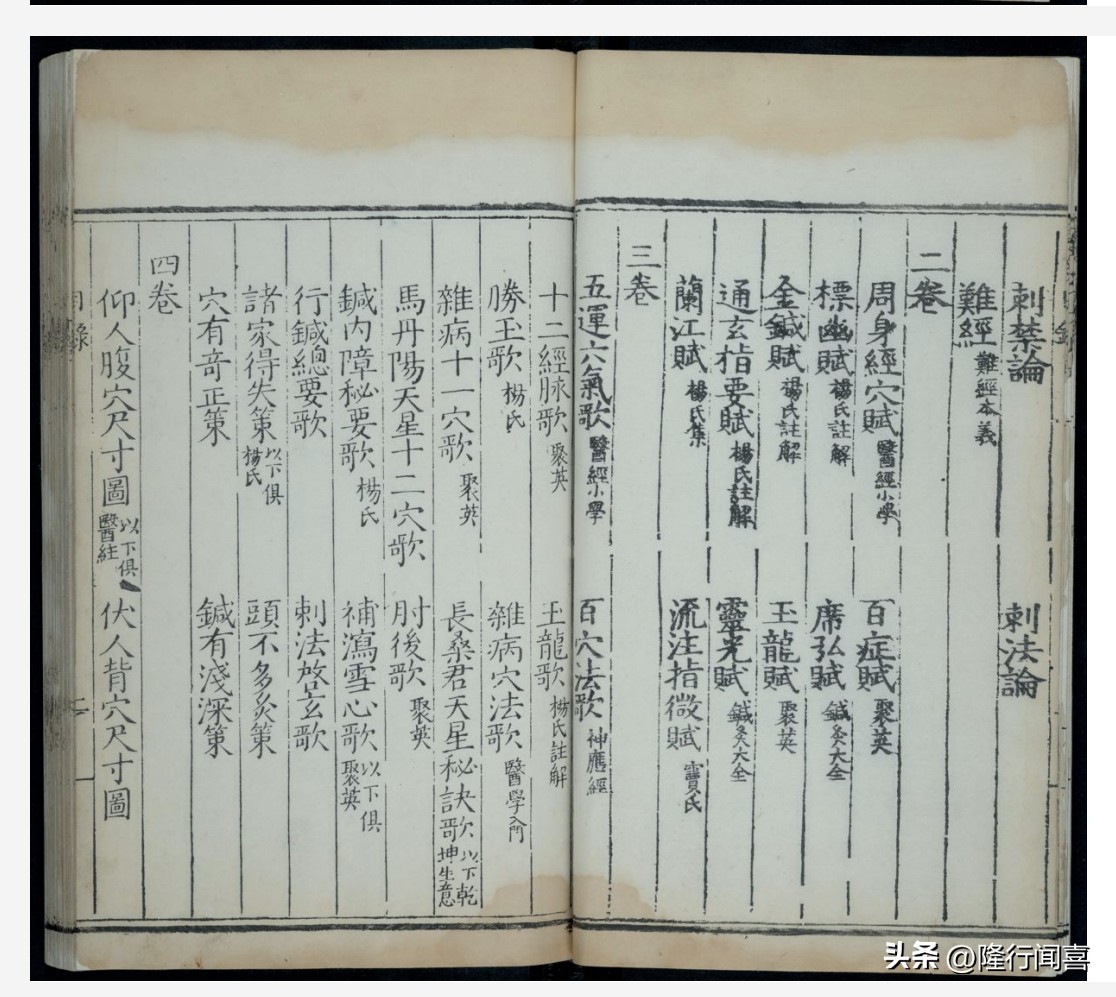 刺禁論 刺法論
難經 難經本義
二卷
周身經穴賦 醫經小學 百症賦 聚英
標幽賦 楊氏註解 席弘賦 鍼灸大全
金鍼賦 楊氏註解 玉龍賦 聚英
通玄指要賦 楊氏註解 靈光賦 鍼灸大全
蘭江賦 楊氏集 流注指微賦 竇氏
三卷
五運六氣歌 醫經小學 百穴法歌 神應經
十二經脉歌 聚英 玉龍歌 楊氏註解
勝玉歌 楊氏 雜病穴法歌 醫學入門
雜病十一穴歌 聚英 長桑君天星秘訣歌 以下乾坤生意
馬丹陽天星十二穴歌 肘後歌 聚英
鍼內障秘要歌 楊氏 補瀉雪心歌 以下俱聚英
行鍼總要歌 刺法啓玄歌
諸家得失策 以下俱楊氏 頭不多灸策
穴有奇正策 鍼有淺深策
四卷
仰人腹穴尺寸圖 以下俱醫經 伏人背穴尺寸圖
目錄
头条 @隆行闻喜